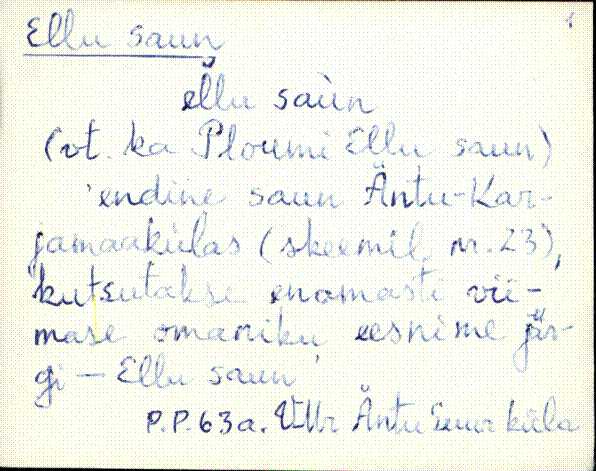 1
Ellu saun
ellu saùn
(vt. ka Ploumi Ellu saun)
'endine saun Äntu-Kar-
jamaakülas (skeemil nr. 23),
kutsutakse enamasti vii-
mase omaniku eesnime jär-
gi — Ellu saun'
P.P. 63a. VMr Äntu Suurküla